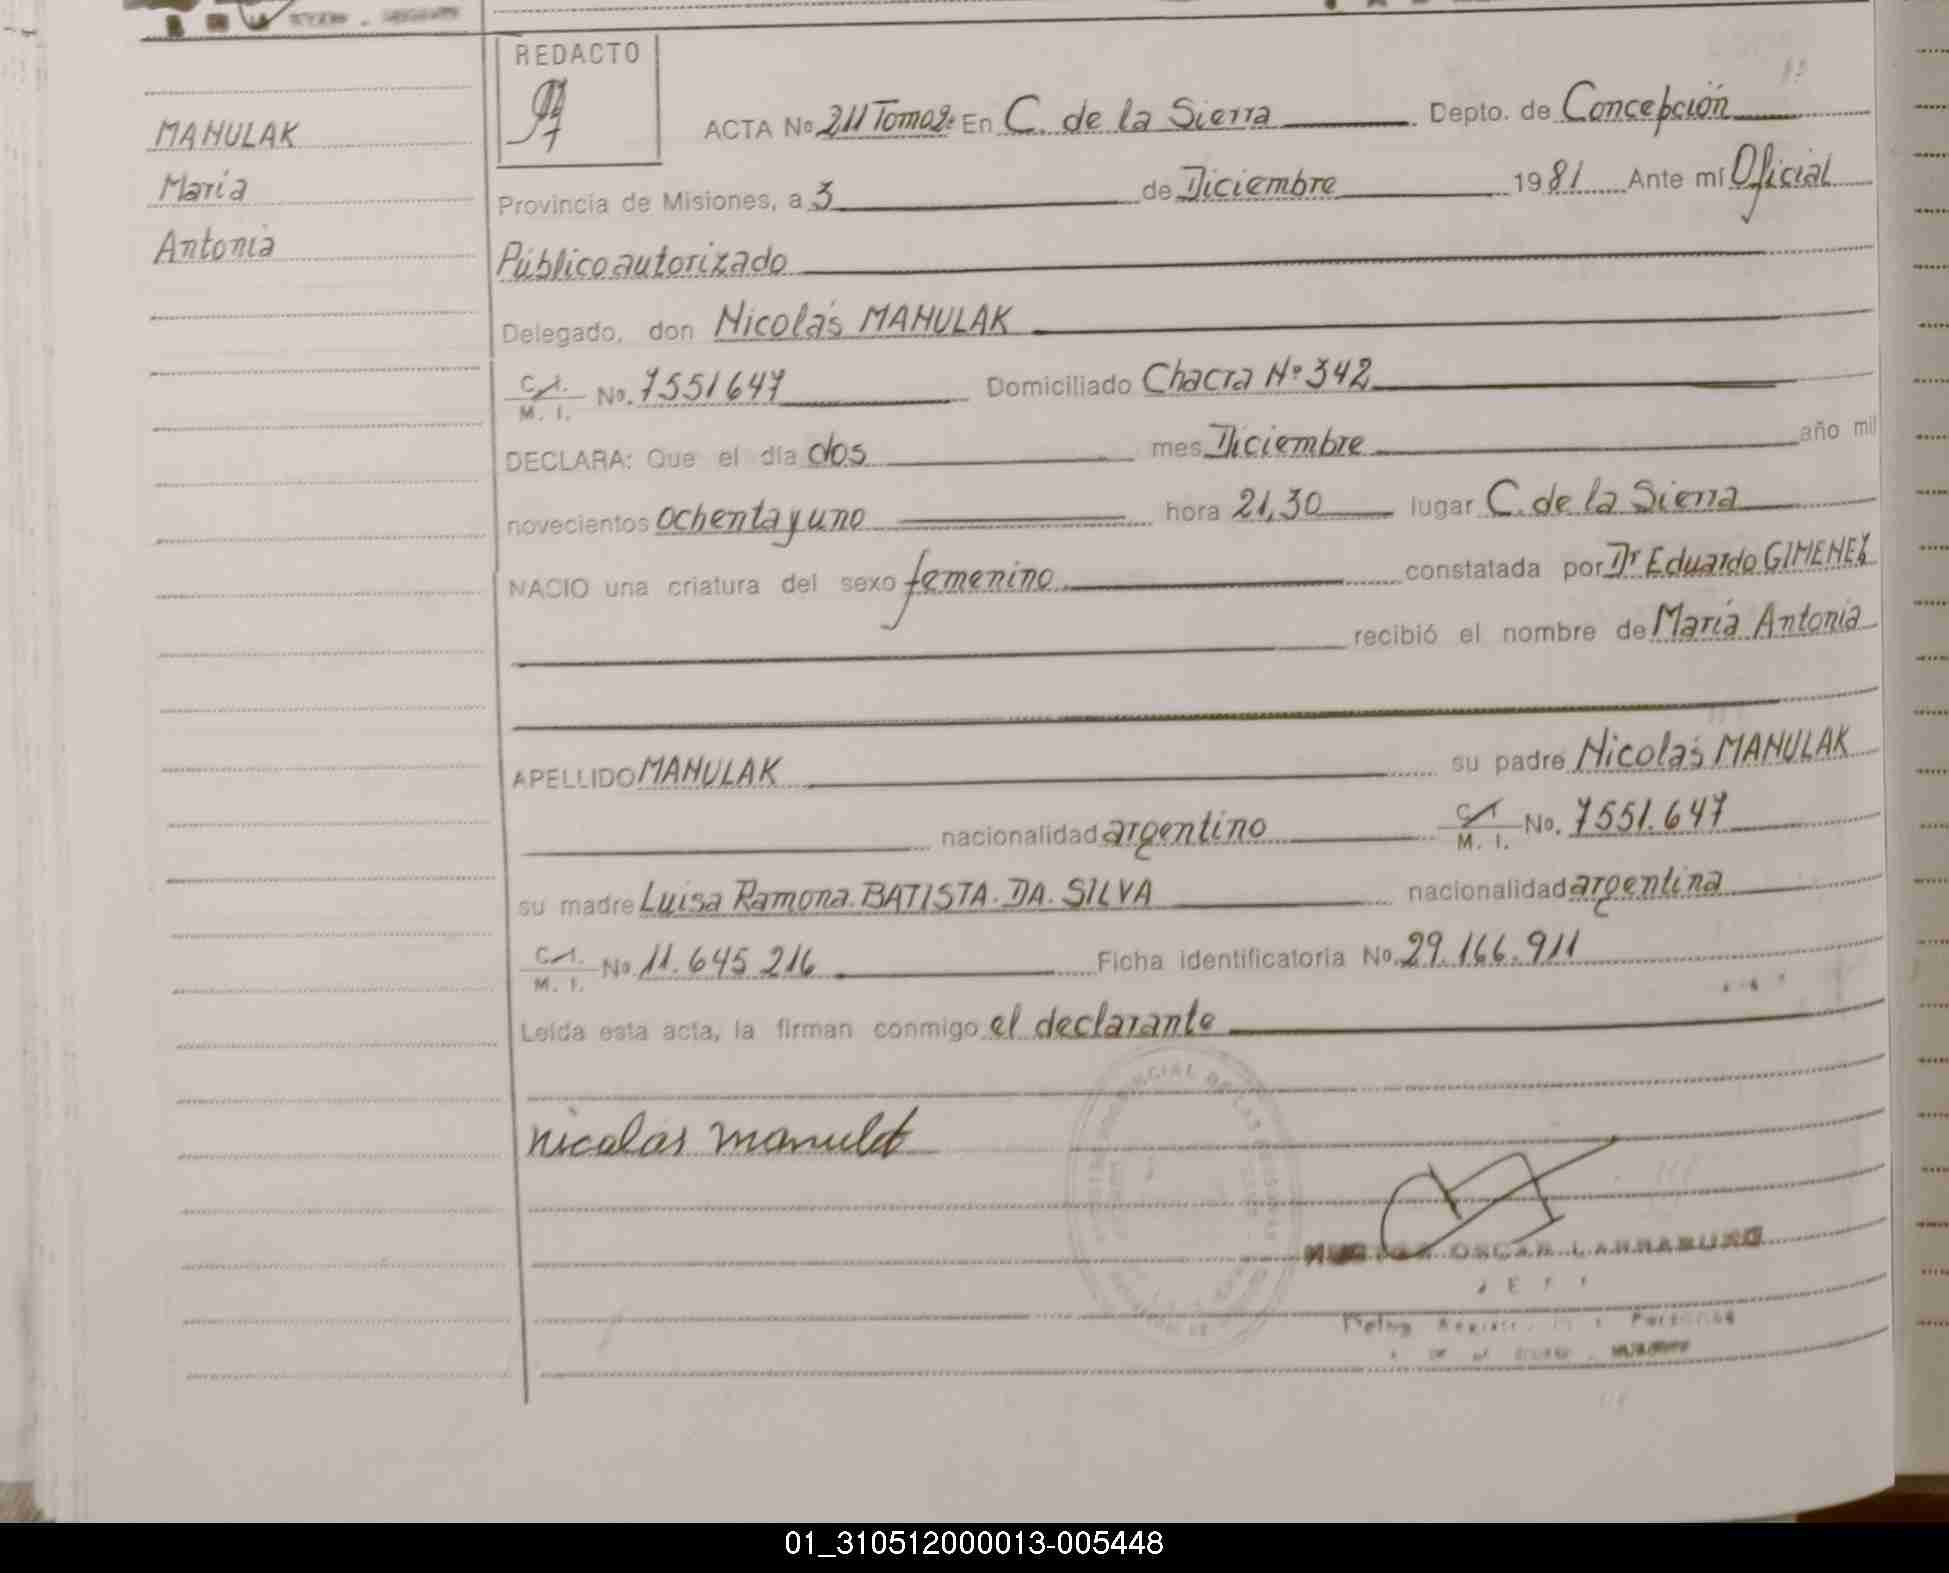 MANULAK
María
Antonia
REDACTO
ACTA No 211 Tomo 2º En C. de la Sierra Depto. de Concepción
Provincia de Misiones, a 3 de Diciembre 1981 Ante mí Oficial
Público autorizado
Delegado, don Nicolás MANULAK
C.I. M. I. No. 7551647 Domiciliado Chacra Nº 342
DECLARA: Que el día dos mes Diciembre año mil
novecientos ochenta y uno hora 21,30 lugar C. de la Sierra
NACIO una criatura del sexo femenino constatada por Dr Eduardo GIMENEZ
recibió el nombre de María Antonia
APELLIDO MANULAK su padre Nicolás MANULAK
nacionalidad argentino C.I. M. I. No. 7551.647
su madre Luisa Ramona BATISTA DA SILVA nacionalidad argentina
C.I. M. I. No. 11.645.216 Ficha identificatoria No. 29.166.911
Leída esta acta, la firman conmigo el declarante
nicolas manulak
OSCAR LARRABURO
JEFE
01_310512000013-005448